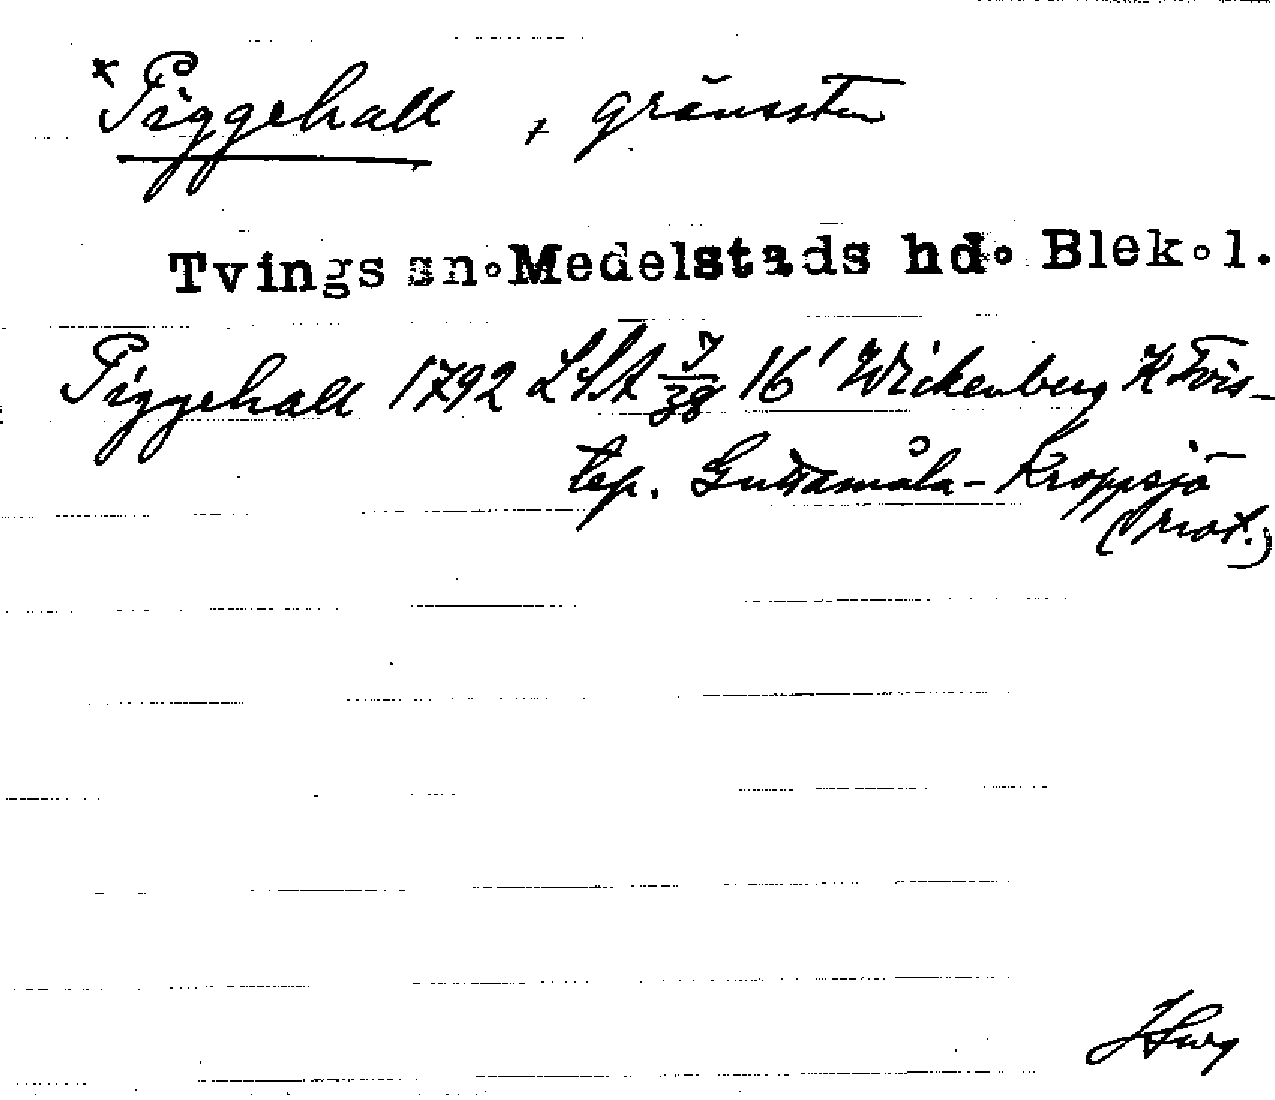 *Piggehall, gränssten
Tvings sn. Medelstads hd. Blek. l.
Piggehall 1792 LSA 7/38 16' Wickenberg K Tvis-
tep. Guttamåla-Kroppsjö
(Prot.)